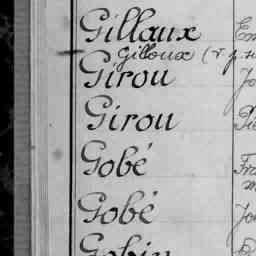 Gillaux
Gilloux (v. p.
Girou
Girou
Gobé
Gobé
Gobin